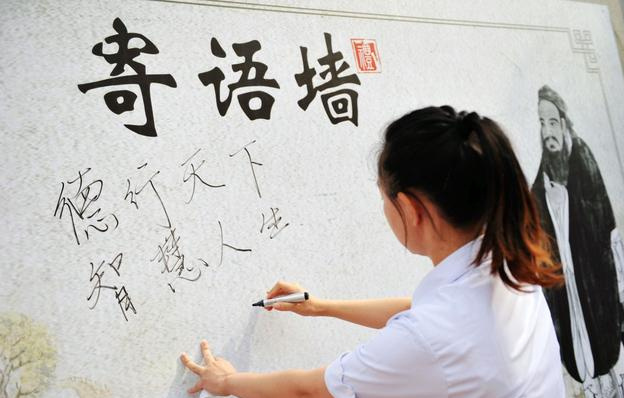 寄语墙
德行天下
智慧人生